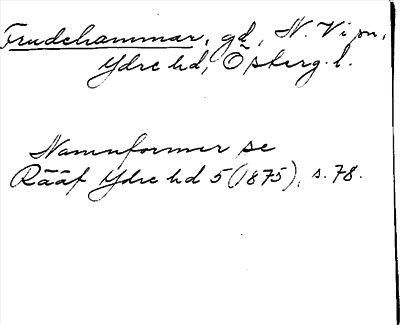 Frudehammar, gd, N. Vi sn,
Ydre hd, Östergl.
Namnformer se
Rääf Ydre hd 5 (1875), s. 78.